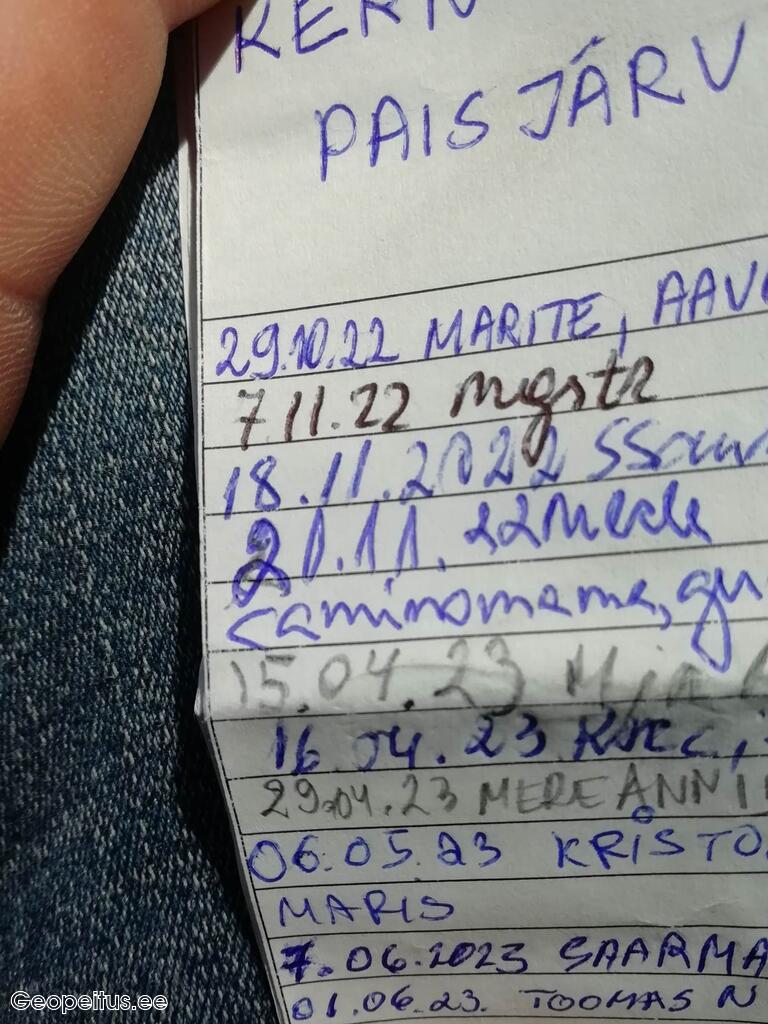 PAISJÄRV
29.10.22 MARITE, AAV
7.11.22 mgstr
18.11.2022
21.11.22
caminomama,
15.04.23
16.04.23
29.04.23 MEREANNI
06.05.23 KRISTO
MARIS
7.06.2023 SAARMA
01.06.23. TOOMAS N
Geopeitus.ee